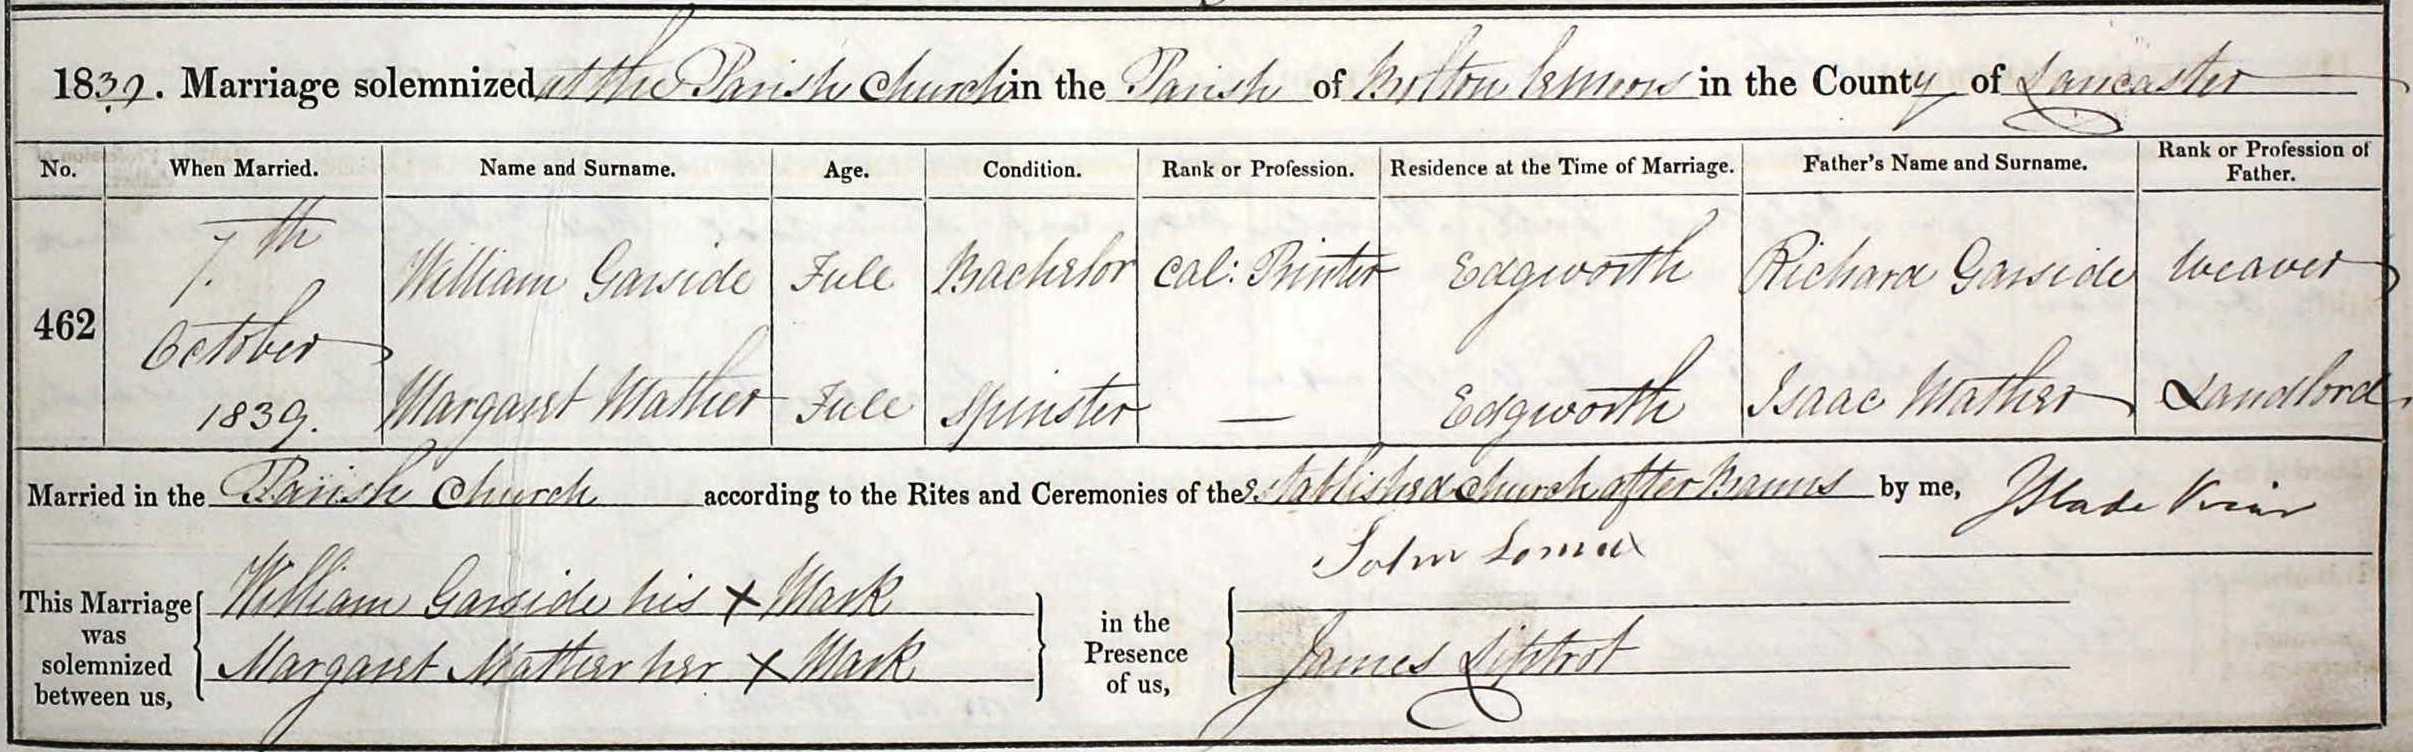 1839. Marriage solemnized at the Parish Church in the Parish of Bolton le Moors in the County of Lancaster
No. When Married. Name and Surname. Age. Condition. Rank or Profession. Residence at the Time of Marriage. Father's Name and Surname. Rank or Profession of Father.
462 7th October 1839. William Garside Full Bachelor Cal: Printer Edgworth Richard Garside Weaver
Margaret Mather Full Spinster — Edgworth Isaac Mather Landlord
Married in the Parish Church according to the Rites and Ceremonies of the Established Church after Banns by me, J Slade Vicar
This Marriage was solemnized between us, William Garside his X Mark
Margaret Mather her X Mark
in the Presence of us, John Lomax
James Liptrot